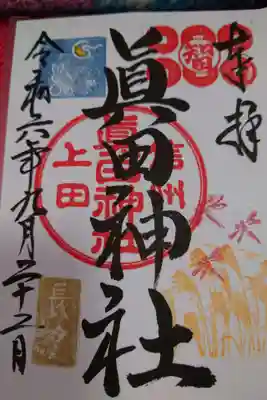 奉拝
眞田神社
信州
眞田神社
上田
令和六年九月二十二日
長月